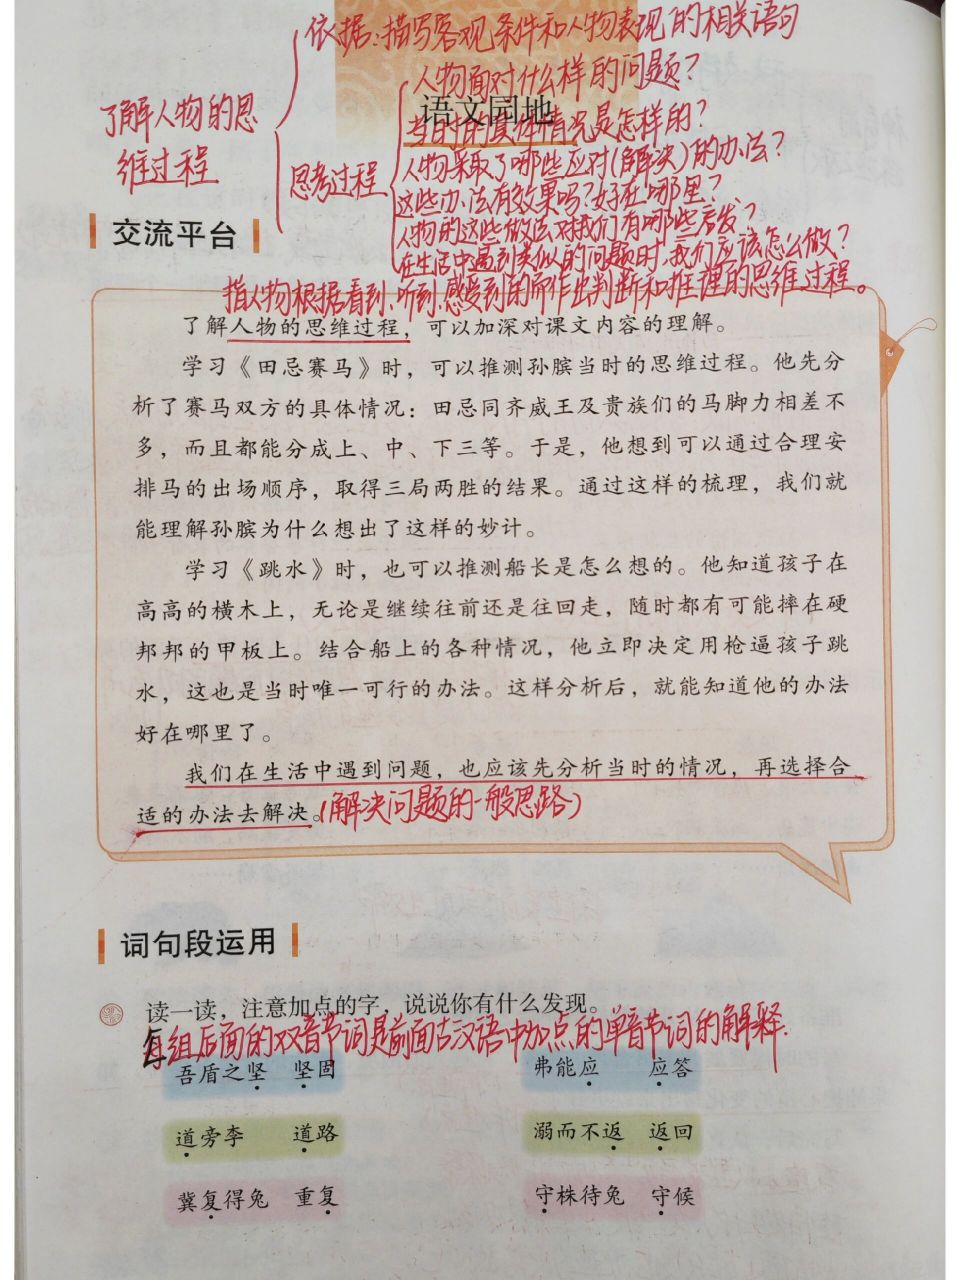 依据:描写客观条件和人物表现的相关语句
人物面对什么样的问题?
语文园地
当时的具体情况是怎样的?
了解人物的思
维过程
思考过程
人物采取了哪些应对(解决)的办法?
这些办法有效果吗?好在哪里?
人物的这些做法对我们有哪些启发?
在生活中遇到类似的问题时,我们应该怎么做?
交流平台
指人物根据看到、听到、感受到的而作出判断和推理的思维过程。
了解人物的思维过程，可以加深对课文内容的理解。
学习《田忌赛马》时，可以推测孙膑当时的思维过程。他先分
析了赛马双方的具体情况：田忌同齐威王及贵族们的马脚力相差不
多，而且都能分成上、中、下三等。于是，他想到可以通过合理安
排马的出场顺序，取得三局两胜的结果。通过这样的梳理，我们就
能理解孙膑为什么想出了这样的妙计。
学习《跳水》时，也可以推测船长是怎么想的。他知道孩子在
高高的横木上，无论是继续往前还是往回走，随时都有可能摔在硬
邦邦的甲板上。结合船上的各种情况，他立即决定用枪逼孩子跳
水，这也是当时唯一可行的办法。这样分析后，就能知道他的办法
好在哪里了。
我们在生活中遇到问题，也应该先分析当时的情况，再选择合
适的办法去解决。(解决问题的一般思路)
词句段运用
读一读，注意加点的字，说说你有什么发现。
每组后面的双音节词是前面古汉语中加点的单音节词的解释.
吾盾之坚 坚固 弗能应 应答
道旁李 道路 溺而不返 返回
冀复得兔 重复 守株待兔 守候